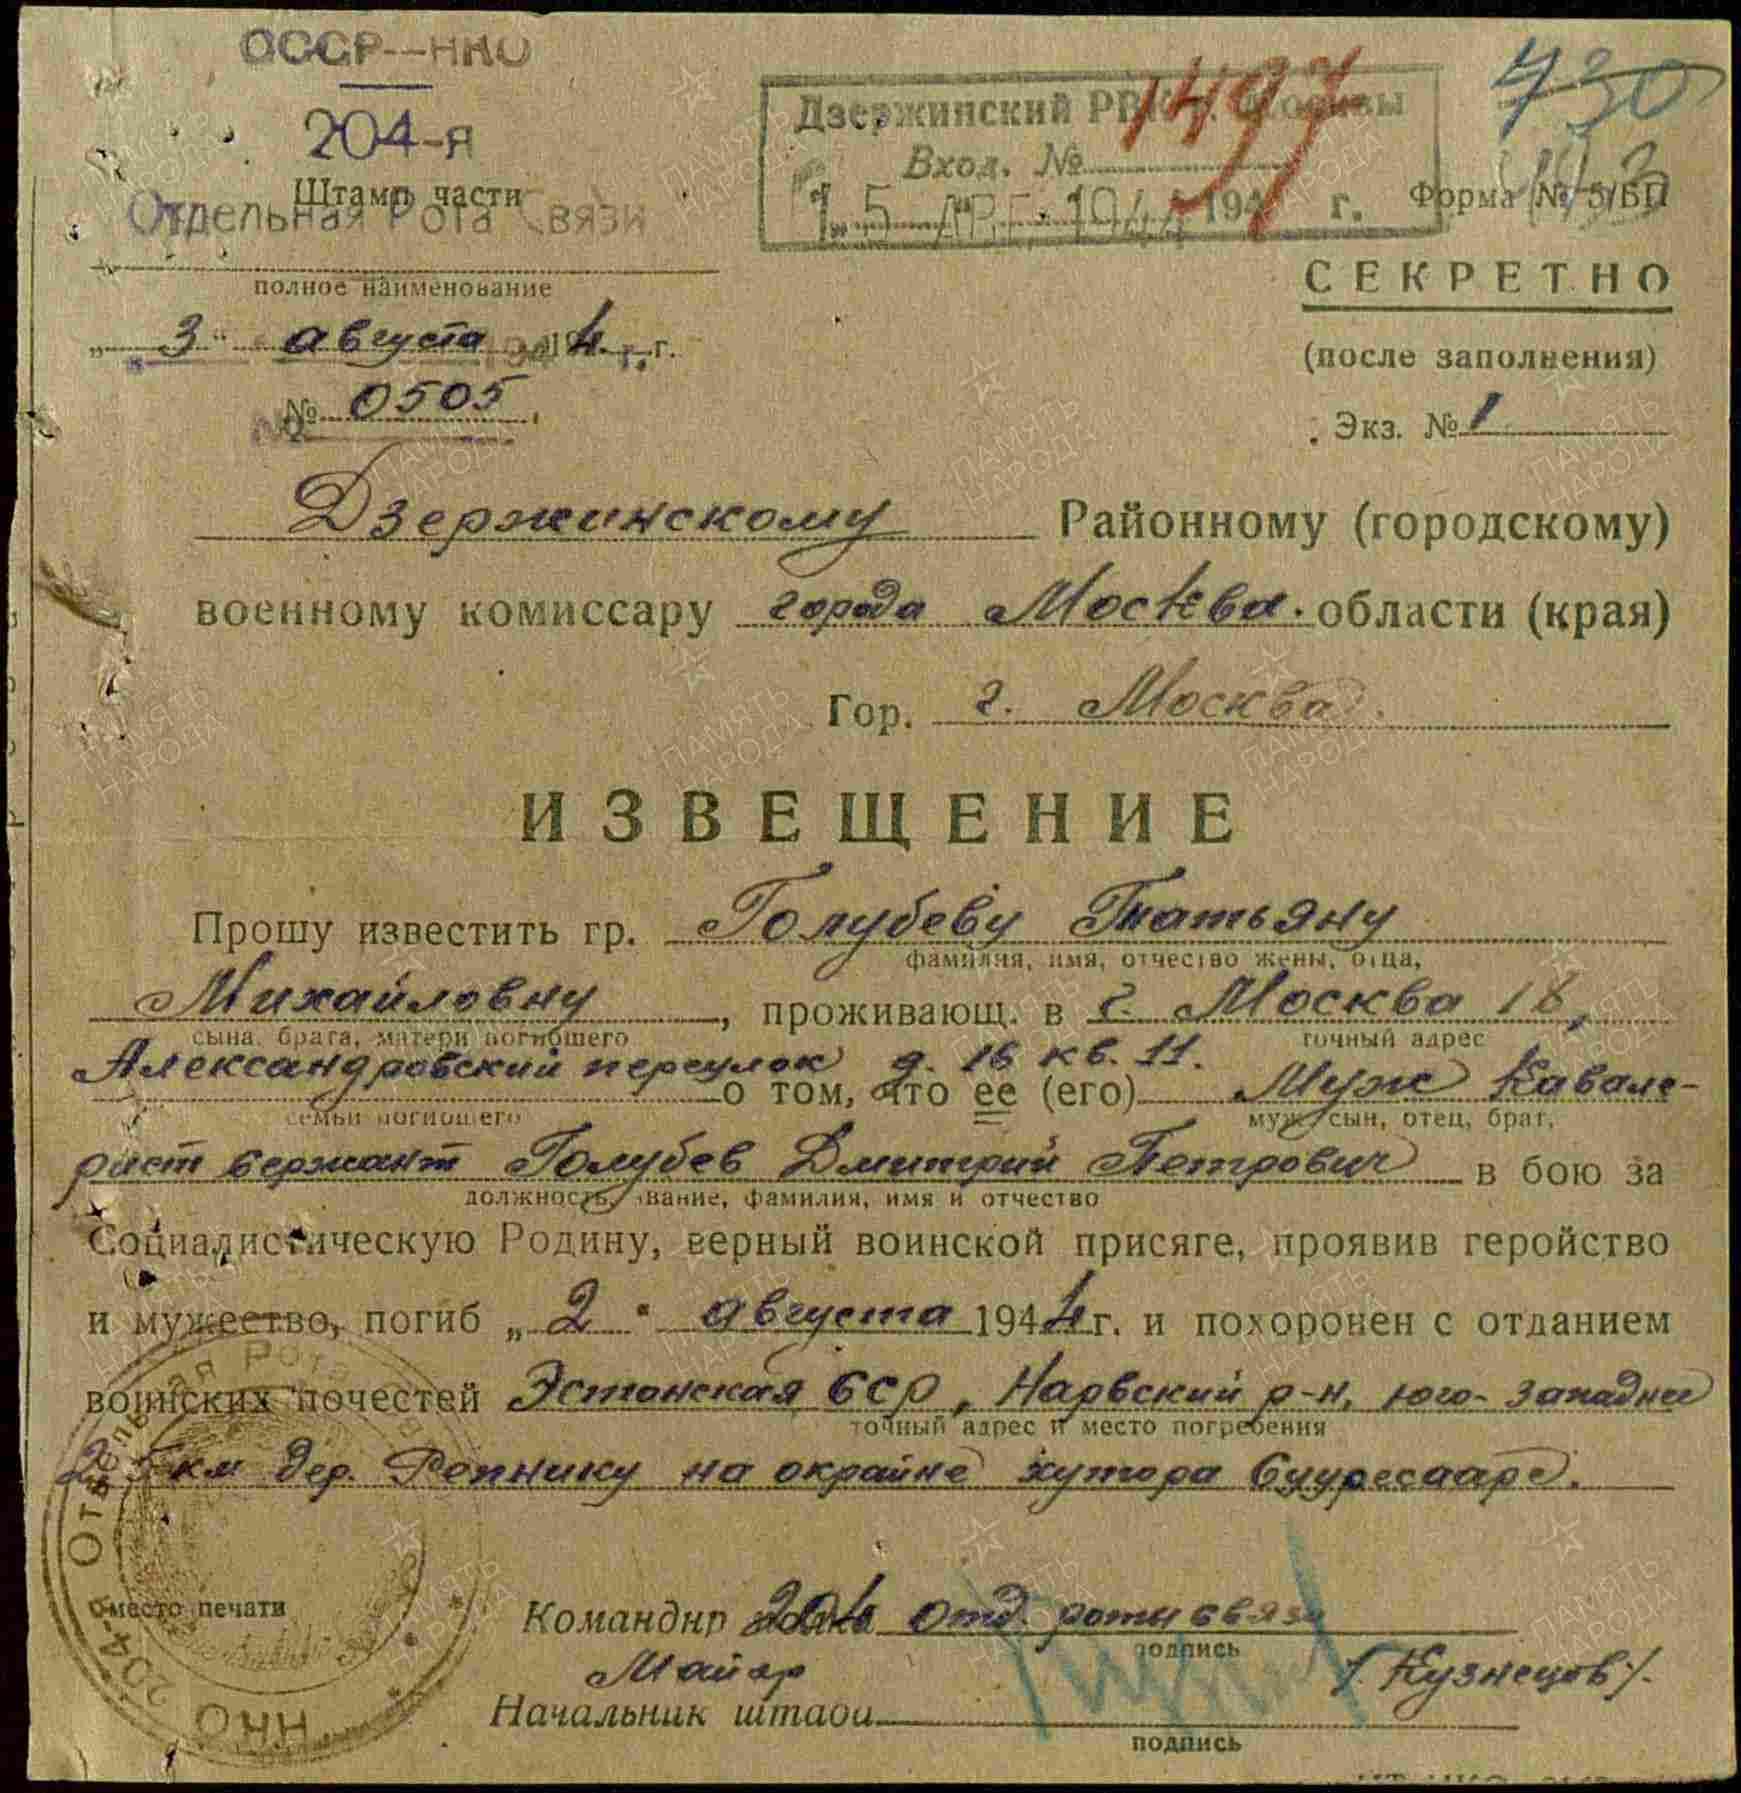 СССР--НКО
204-я
Штамп части
Отдельная Рота Связи
полное наименование
„ 3 " августа 194 4 г.
№ 0505
Дзержинский РВК г. Москвы
Вход. № 1497
15 АВГ. 1944 194 г.
730
Форма № 5/БП
СЕКРЕТНО
(после заполнения)
Экз. № 1
Дзержинскому Районному (городскому)
военному комиссару города Москва. области (края)
Гор. г. Москва.
ИЗВЕЩЕНИЕ
Прошу известить гр. Голубеву Татьяну
фамилия, имя, отчество жены, отца,
Михайловну, проживающ. в г. Москва 18,
сына, брата, матери погибшего точный адрес
Александровский переулок д. 16 кв. 11.
о том, что ее (его) Муж Кавале-
семьи погибшего муж, сын, отец, брат,
рист сержант Голубев Дмитрий Петрович в бою за
должность, звание, фамилия, имя и отчество
Социалистическую Родину, верный воинской присяге, проявив геройство
и мужество, погиб „ 2 " августа 1944 г. и похоронен с отданием
воинских почестей Эстонская ССР, Нарвский р-н, юго-западнее
точный адрес и место погребения
2,5 км дер. Репнику на окраине хутора Сууресааре.
204-я Отдельная Рота
НКО
место печати
Командир 204 отд. роты связи
подпись
Майор /Кузнецов/.
Начальник штаба
подпись
ПАМЯТЬ НАРОДА